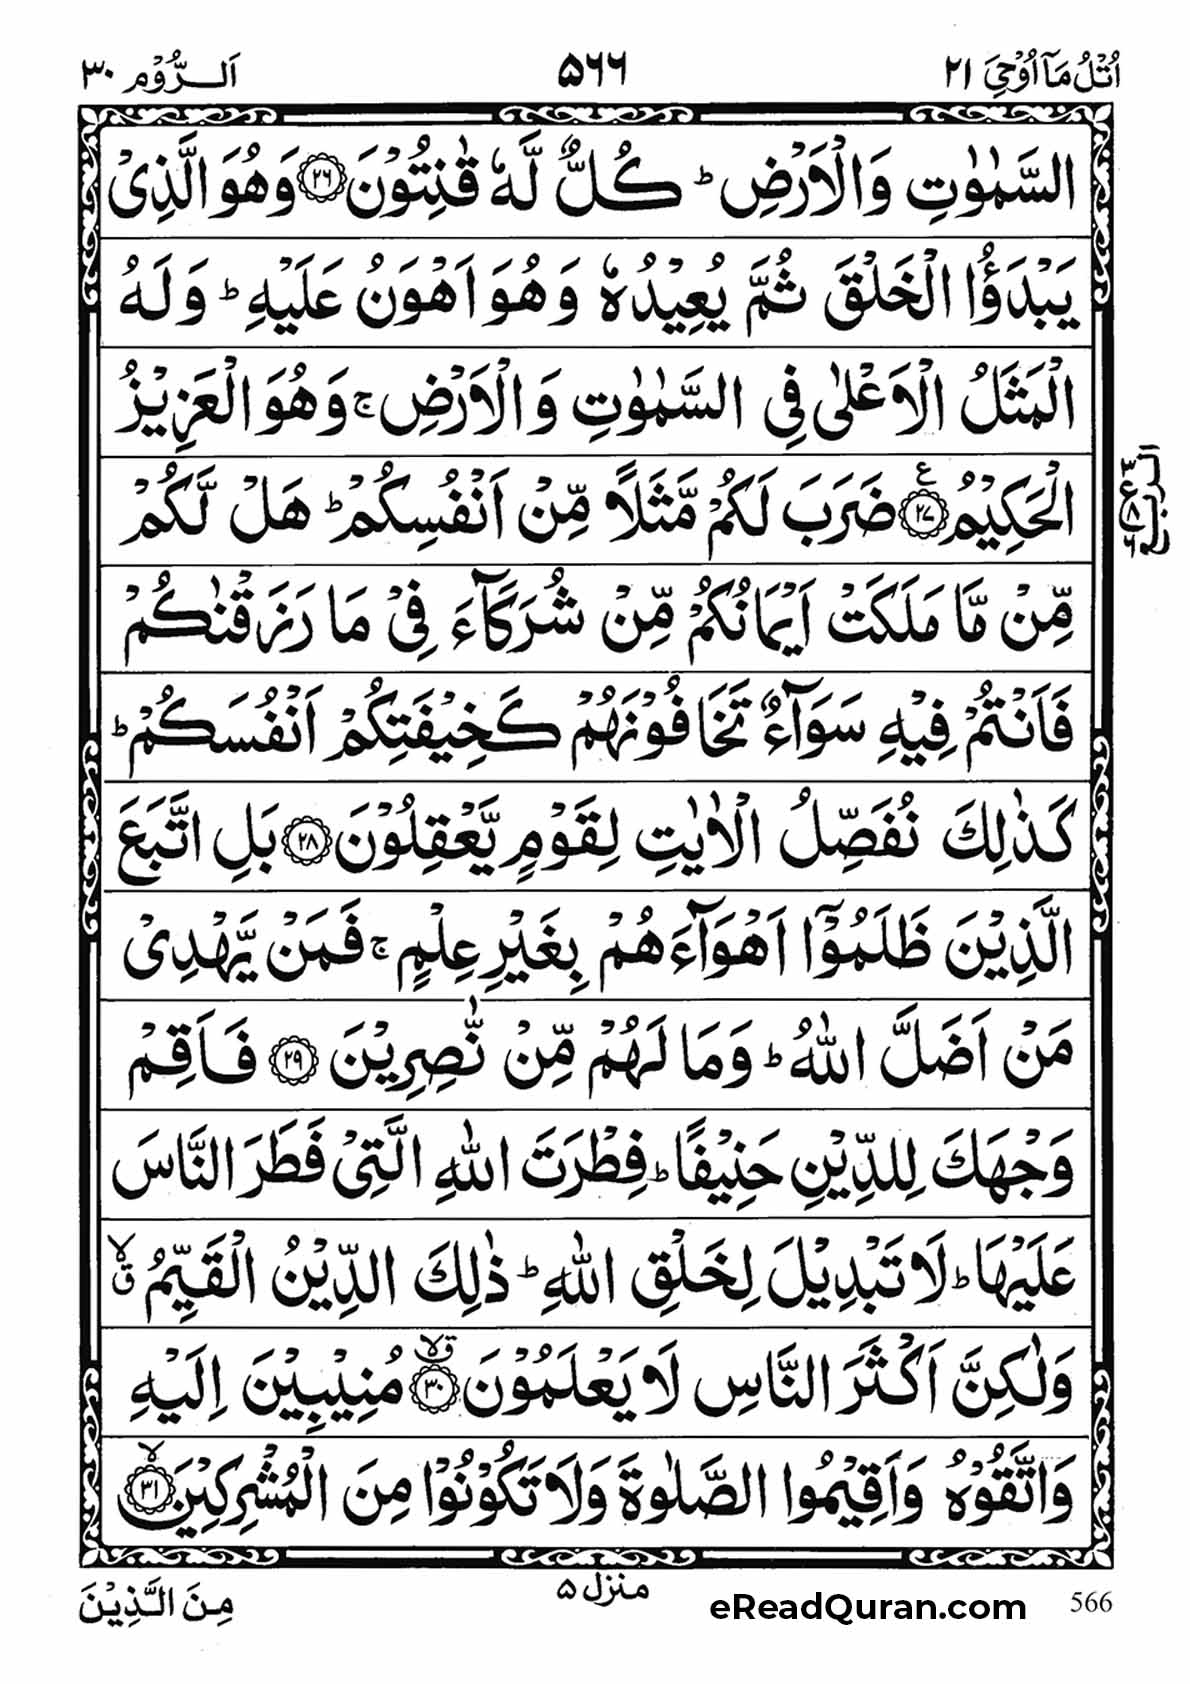 اُتْلُ مَآ اُوْحِیَ ۲۱
۵۶۶
اَلرُّوْم ۳۰
السَّمٰوٰتِ وَالْاَرْضِ ؕ كُلٌّ لَّهٗ قٰنِتُوْنَ ۲۶ وَهُوَ الَّذِیْ
یَبْدَؤُا الْخَلْقَ ثُمَّ یُعِیْدُهٗ وَهُوَ اَهْوَنُ عَلَیْهِ ؕ وَلَهُ
الْمَثَلُ الْاَعْلٰی فِی السَّمٰوٰتِ وَالْاَرْضِ ۚ وَهُوَ الْعَزِیْزُ
الْحَكِیْمُ ۲۷ ع ضَرَبَ لَكُمْ مَّثَلًا مِّنْ اَنْفُسِكُمْ ؕ هَلْ لَّكُمْ
مِّنْ مَّا مَلَكَتْ اَیْمَانُكُمْ مِّنْ شُرَكَآءَ فِیْ مَا رَزَقْنٰكُمْ
فَاَنْتُمْ فِیْهِ سَوَآءٌ تَخَافُوْنَهُمْ كَخِیْفَتِكُمْ اَنْفُسَكُمْ ؕ
كَذٰلِكَ نُفَصِّلُ الْاٰیٰتِ لِقَوْمٍ یَّعْقِلُوْنَ ۲۸ بَلِ اتَّبَعَ
الَّذِیْنَ ظَلَمُوْۤا اَهْوَآءَهُمْ بِغَیْرِ عِلْمٍ ۚ فَمَنْ یَّهْدِیْ
مَنْ اَضَلَّ اللّٰهُ ؕ وَمَا لَهُمْ مِّنْ نّٰصِرِیْنَ ۲۹ فَاَقِمْ
وَجْهَكَ لِلدِّیْنِ حَنِیْفًا ؕ فِطْرَتَ اللّٰهِ الَّتِیْ فَطَرَ النَّاسَ
عَلَیْهَا ؕ لَا تَبْدِیْلَ لِخَلْقِ اللّٰهِ ؕ ذٰلِكَ الدِّیْنُ الْقَیِّمُ ۙق
وَلٰكِنَّ اَكْثَرَ النَّاسِ لَا یَعْلَمُوْنَ ۳۰ ۙق مُنِیْبِیْنَ اِلَیْهِ
وَاتَّقُوْهُ وَاَقِیْمُوا الصَّلٰوةَ وَلَا تَكُوْنُوْا مِنَ الْمُشْرِكِیْنَ ۳۱ ۙ
مِنَ الَّذِیْنَ
منزل ۵
eReadQuran.com
566